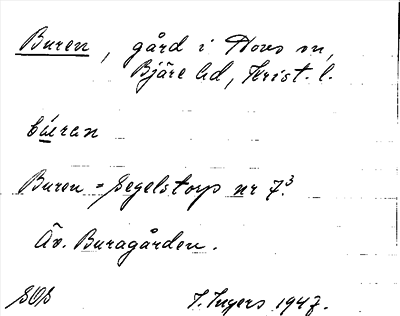 Buren, gård i Hovs sn,
Bjäre hd, Krist. l.
bú̱ran
Buren = Segelstorp nr 7³.
Äv. Buragården.
SOS I. Ingers 1947.